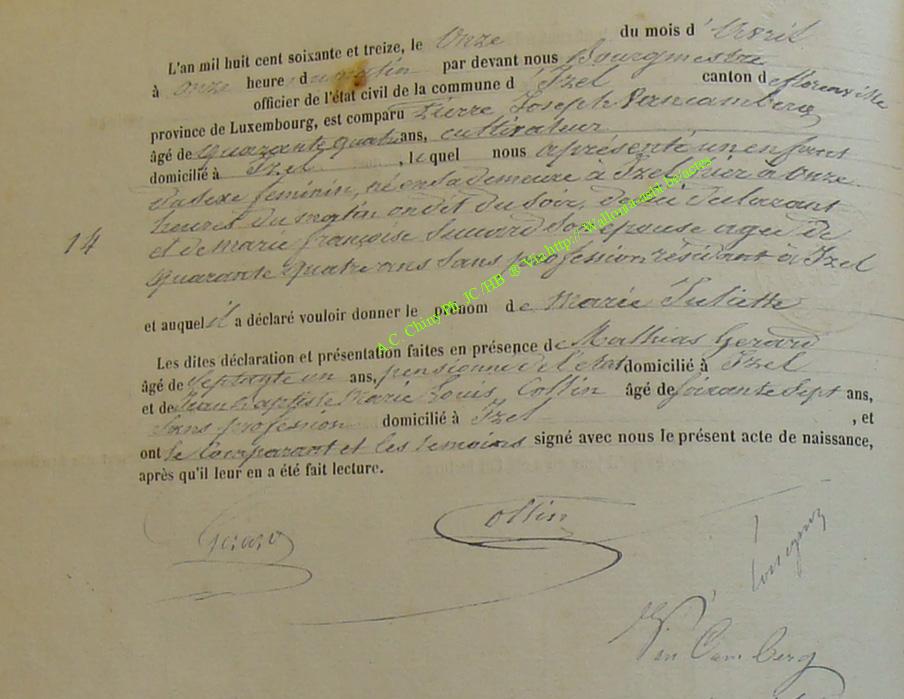 L'an mil huit cent soixante et treize, le Onze du mois d'Avril
à onze heure du matin par devant nous Bourgmestre
officier de l'état civil de la commune d'Izel canton de florenville
province de Luxembourg, est comparu Pierre Joseph Vancamberg
âgé de quarante quatre ans, cultivateur
domicilié à Izel, lequel nous a présenté un enfant
du sexe feminin, né en sa demeure à Izel hier à onze
heures du matin on dit du Soir, de lui declarant
14
et de Marie françoise son epouse agée de
quarante quatre ans sans profession résidant à Izel
et auquel il a déclaré vouloir donner le prénom de Marie Juliette
Les dites déclaration et présentation faites en présence de Mathias Gerard
âgé de Septante un ans, pensionné de l'etat domicilié à Izel
et de Jean Baptiste Marie Louis Collin âgé de soixante Sept ans,
Sans profession domicilié à Izel, et
ont le Comparant et les temoins signé avec nous le présent acte de naissance,
après qu'il leur en a été fait lecture.
Gerard
Collin
Van Camberg
A.C. Chiny Ph. JC /HB ® Via http:// Wallonia-asbl.be/actes